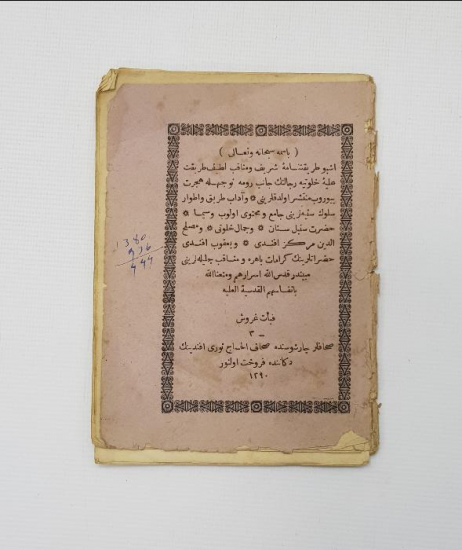 ( باسمه سبحانه وتعالى )
اشبو طريقتنامۀ شريف ومناقب لطيف طريقت
عليۀ خلوتيه رجالنك جانب رومه نوجهله هجرت
بيوروب منتشر اولدقلرينى * وآداب طريق واطوار
سلوك سنيه لرينى جامع و محتوى اولوب وسيما *
حضرت سنبل سنان * وجمال خلوتى * ومصلح
الدين مركز افندى * ويعقوب افندى
حضراتلرينك كرامات باهره و مناقب جليله لرينى
مبيندر قدس الله اسرارهم ومتعنا الله
بانفاسهم القدسية العليه
فيأت غروش
٣
صحافلر چارشوسنده صحافى الحاج نورى افندينك
دكاننده فروخت اولنور
١٢٩٠
380
449